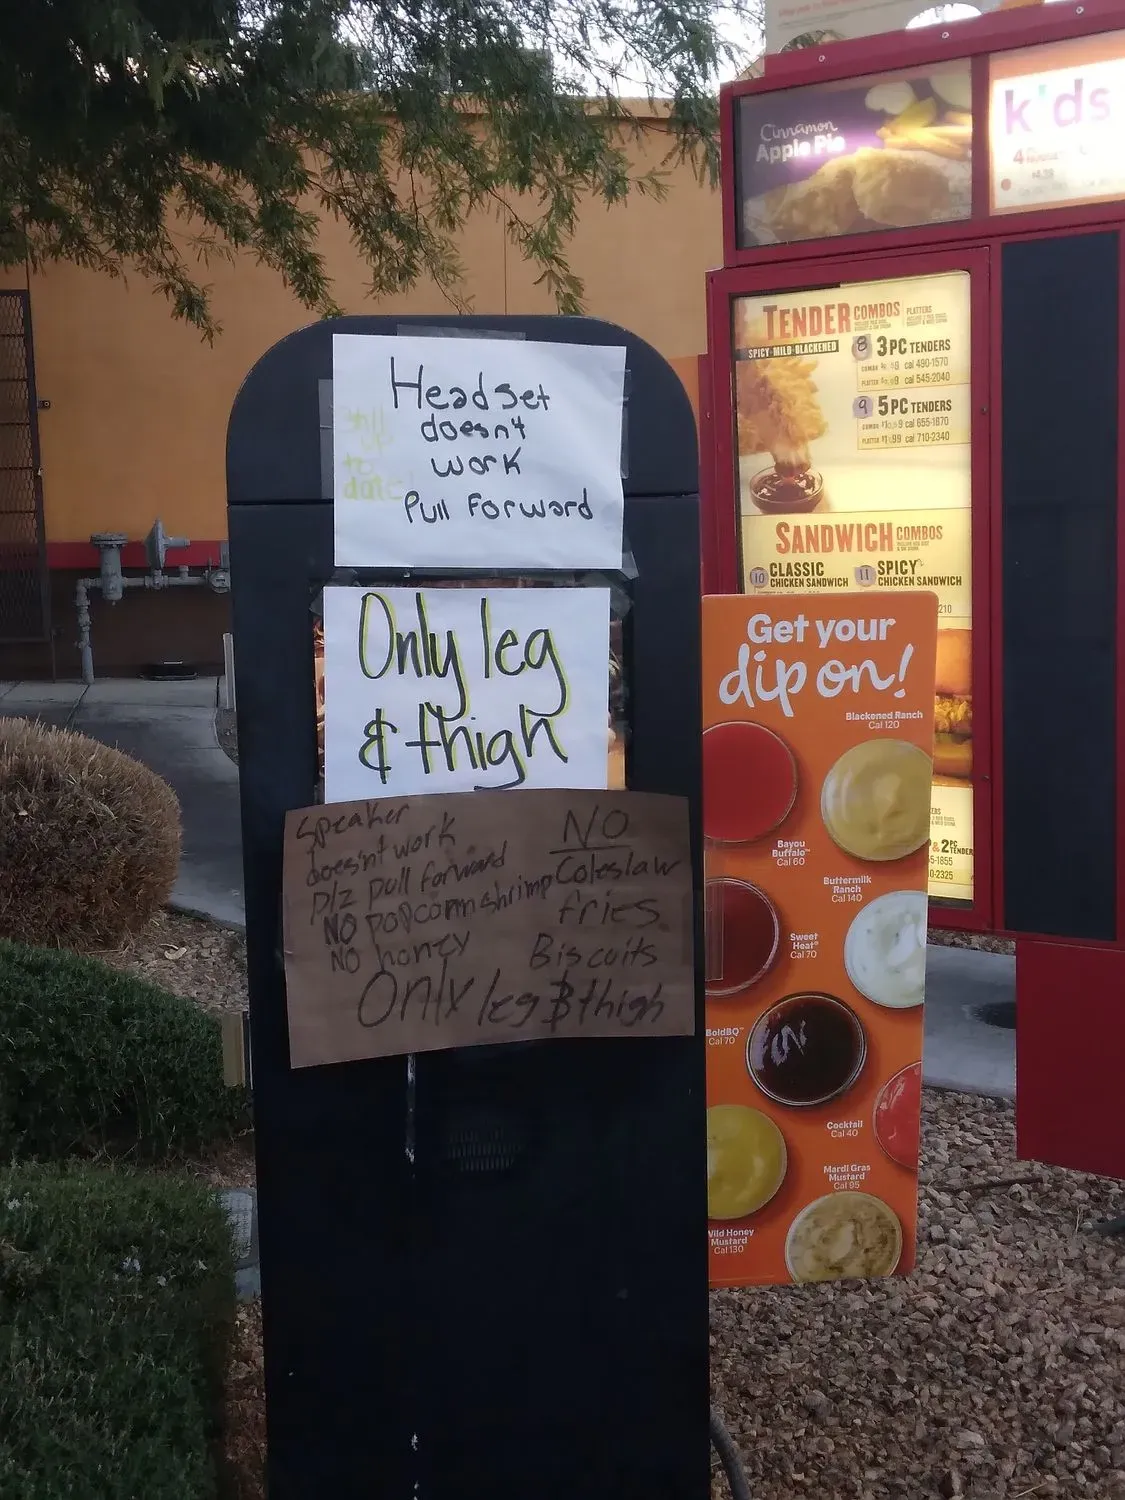 Headset
doesn't
work
Pull Forward
still
up
to
date!
Only leg
& thigh
Speaker
doesn't work
plz pull forward
NO popcorn shrimp
NO honey
NO
Coleslaw
fries
Biscuits
Only leg & thigh
Cinnamon
Apple Pie
kids
4
TENDER COMBOS
PLATTERS
SPICY·MILD·BLACKENED
8 3PC TENDERS
COMBO cal 490-1570
PLATTER cal 545-2040
9 5PC TENDERS
COMBO cal 655-1870
PLATTER cal 710-2340
SANDWICH COMBOS
10 CLASSIC
CHICKEN SANDWICH
11 SPICY
CHICKEN SANDWICH
210
& 2PC
TENDER
5-1855
0-2325
Get your
dip on!
Blackened Ranch
Cal 120
Bayou
Buffalo™
Cal 60
Buttermilk
Ranch
Cal 140
Sweet
Heat®
Cal 70
BoldBQ™
Cal 70
Cocktail
Cal 40
Mardi Gras
Mustard
Cal 95
Wild Honey
Mustard
Cal 130